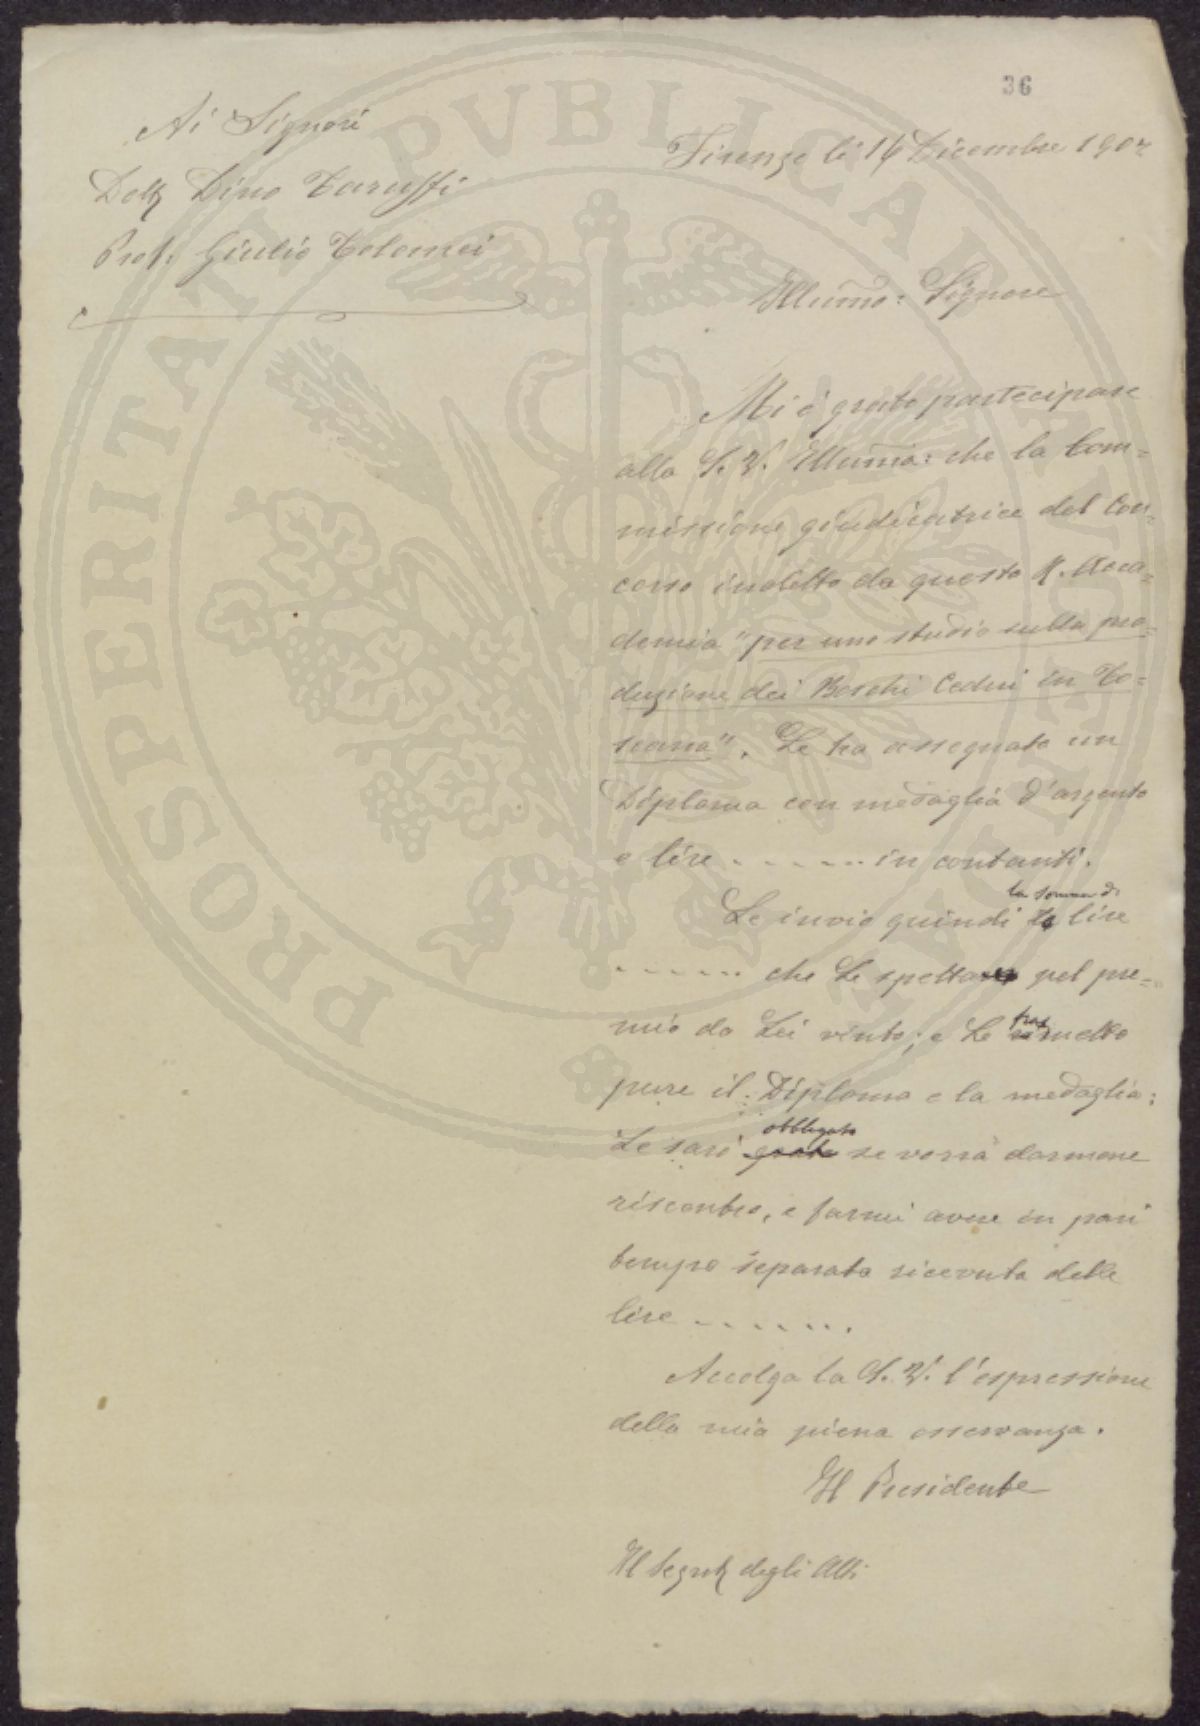 36
Ai Signori
Dott Dino Taruffi
Prof. Giulio Tolomei
Firenze li 14 Dicembre 1902
Illumo: Signore
Mi è grato partecipare
alla S. V. Illuma: che la Com=
missione giudicatrice del Con=
corso indetto da questa R. Acca=
demia "per uno studio sulla pro=
duzione dei Boschi Cedui in To=
scana". Le ha assegnato un
Diploma con medaglia d'argento
e lire . . . . . . . in contanti.
la somma di
Le invio quindi le lire
. . . . . . che Le spettano pel pre=
mio da Lei vinto; e Le rimetto
tras
pure il Diploma e la medaglia:
obbligato
Le sarò grato se vorrà darmene
riscontro, e farmi avere in pari
tempo separata ricevuta delle
lire . . . . . . .
Accolga la S. V. l'espressione
della mia piena osservanza.
Il Presidente
Il Segret degli Atti
PROSPERITATI PVBLICAE